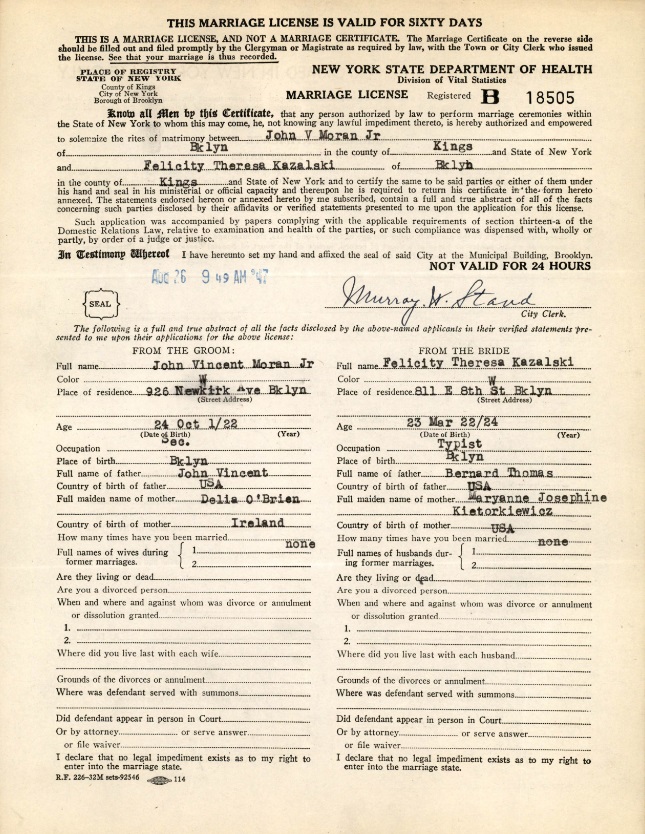 THIS MARRIAGE LICENSE IS VALID FOR SIXTY DAYS
THIS IS A MARRIAGE LICENSE, AND NOT A MARRIAGE CERTIFICATE. The Marriage Certificate on the reverse side
should be filled out and filed promptly by the Clergyman or Magistrate as required by law, with the Town or City Clerk who issued
the license. See that your marriage is thus recorded.
PLACE OF REGISTRY
STATE OF NEW YORK
County of Kings
City of New York
Borough of Brooklyn
NEW YORK STATE DEPARTMENT OF HEALTH
Division of Vital Statistics
MARRIAGE LICENSE Registered B 18505
Know all Men by this Certificate, that any person authorized by law to perform marriage ceremonies within
the State of New York to whom this may come, he, not knowing any lawful impediment thereto, is hereby authorized and empowered
to solemnize the rites of matrimony between John V Moran Jr
of Bklyn in the county of Kings and State of New York
and Felicity Theresa Kazalski of Bklyn
in the county of Kings and State of New York and to certify the same to be said parties or either of them under
his hand and seal in his ministerial or official capacity and thereupon he is required to return his certificate in the form hereto
annexed. The statements endorsed hereon or annexed hereto by me subscribed, contain a full and true abstract of all of the facts
concerning such parties disclosed by their affidavits or verified statements presented to me upon the application for this license.
Such application was accompanied by papers complying with the applicable requirements of section thirteen-a of the
Domestic Relations Law, relative to examination and health of the parties, or such compliance was dispensed with, wholly or
partly, by order of a judge or justice.
In Testimony Whereof I have hereunto set my hand and affixed the seal of said City at the Municipal Building, Brooklyn.
NOT VALID FOR 24 HOURS
AUG 26 9 49 AM '47
SEAL
Murray W. Stand
City Clerk.
The following is a full and true abstract of all the facts disclosed by the above-named applicants in their verified statements pre-
sented to me upon their applications for the above license:
FROM THE GROOM:
Full name John Vincent Moran Jr
Color W
Place of residence 926 Newkirk Ave Bklyn
(Street Address)
Age 24 Oct 1/22
(Date of Birth) (Year)
Occupation Sec.
Place of birth Bklyn
Full name of father John Vincent
Country of birth of father USA
Full maiden name of mother Delia O'Brien
Country of birth of mother Ireland
How many times have you been married none
Full names of wives during
former marriages.
1
2
Are they living or dead
Are you a divorced person
When and where and against whom was divorce or annulment
or dissolution granted
1.
2.
Where did you live last with each wife
Grounds of the divorces or annulment
Where was defendant served with summons
Did defendant appear in person in Court
Or by attorney or serve answer
or file waiver
I declare that no legal impediment exists as to my right to
enter into the marriage state.
R.F. 226-32M sets-92546 114
FROM THE BRIDE
Full name Felicity Theresa Kazalski
Color W
Place of residence 811 E 8th St Bklyn
(Street Address)
Age 23 Mar 22/24
(Date of Birth) (Year)
Occupation Typist
Place of birth Bklyn
Full name of father Bernard Thomas
Country of birth of father USA
Full maiden name of mother Maryanne Josephine
Kietorkiewicz
Country of birth of mother USA
How many times have you been married none
Full names of husbands dur-
ing former marriages.
1
2
Are they living or dead
Are you a divorced person
When and where and against whom was divorce or annulment
or dissolution granted
1.
2.
Where did you live last with each husband
Grounds of the divorces or annulment
Where was defendant served with summons
Did defendant appear in person in Court
Or by attorney or serve answer
or file waiver
I declare that no legal impediment exists as to my right to
enter into the marriage state.